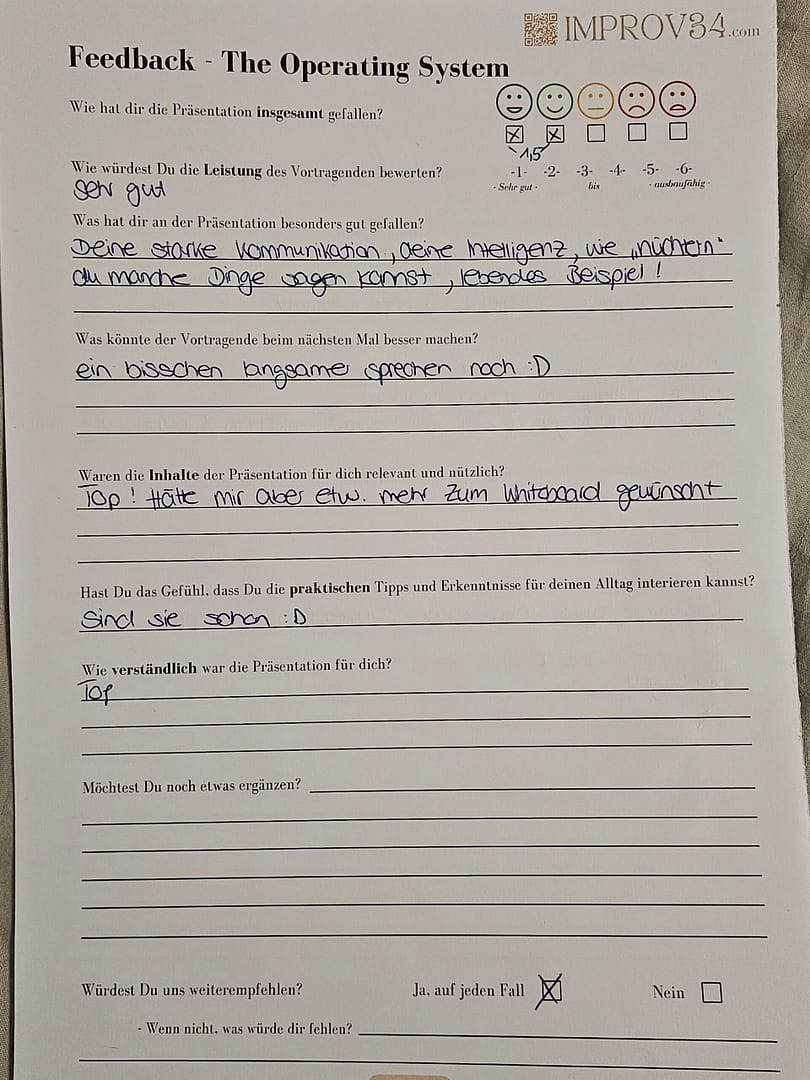 IMPROV34.com
Feedback - The Operating System
Wie hat dir die Präsentation insgesamt gefallen?
1,5
Wie würdest Du die Leistung des Vortragenden bewerten?
-1- -2- -3- -4- -5- -6-
- Sehr gut - bis - ausbaufähig -
sehr gut
Was hat dir an der Präsentation besonders gut gefallen?
Deine starke Kommunikation, deine Intelligenz, wie „nüchtern"
du manche Dinge sagen kannst, lebendes Beispiel!
Was könnte der Vortragende beim nächsten Mal besser machen?
ein bisschen langsamer sprechen noch :D
Waren die Inhalte der Präsentation für dich relevant und nützlich?
Top! Hätte mir aber etw. mehr zum Whiteboard gewünscht
Hast Du das Gefühl, dass Du die praktischen Tipps und Erkenntnisse für deinen Alltag interieren kannst?
Sind sie schon :D
Wie verständlich war die Präsentation für dich?
Top
Möchtest Du noch etwas ergänzen?
Würdest Du uns weiterempfehlen? Ja, auf jeden Fall Nein
- Wenn nicht, was würde dir fehlen?